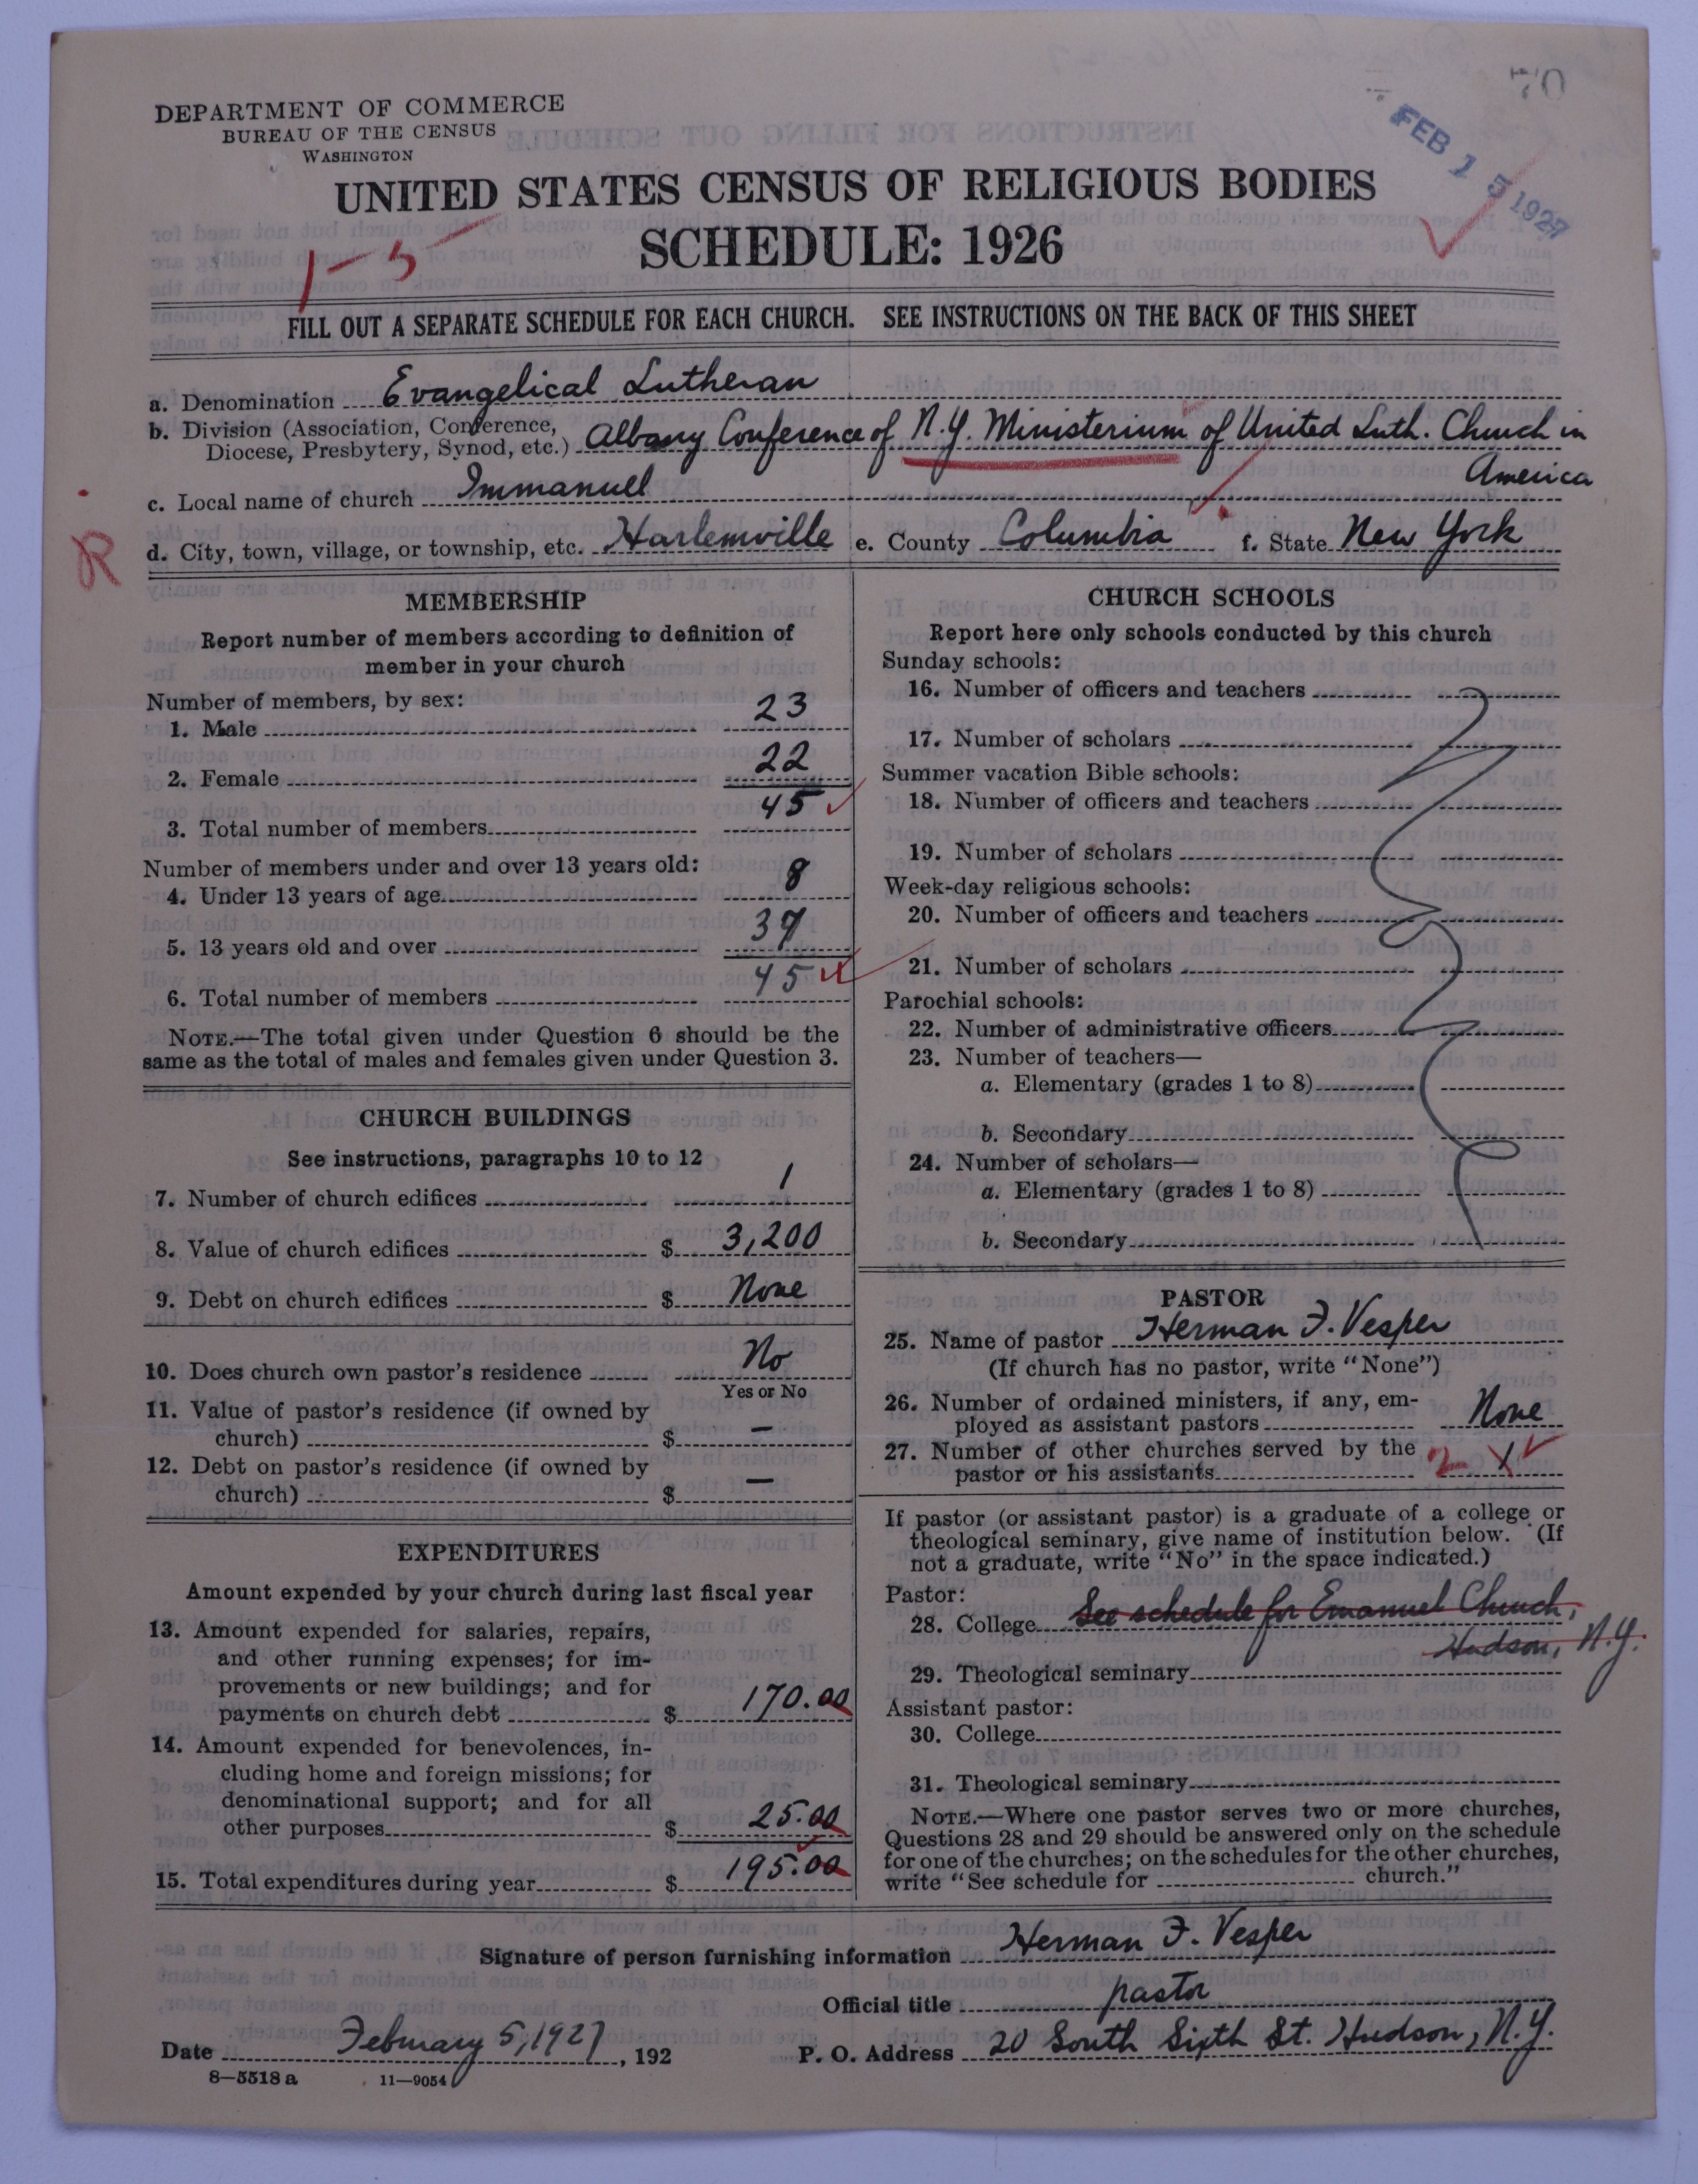 70
FEB 15 1927
DEPARTMENT OF COMMERCE
BUREAU OF THE CENSUS
WASHINGTON
UNITED STATES CENSUS OF RELIGIOUS BODIES
SCHEDULE: 1926
1-5
FILL OUT A SEPARATE SCHEDULE FOR EACH CHURCH. SEE INSTRUCTIONS ON THE BACK OF THIS SHEET
a. Denomination Evangelical Lutheran
b. Division (Association, Conference, Diocese, Presbytery, Synod, etc.) Albany Conference of N.Y. Ministerium of United Luth. Church in America
c. Local name of church Immanuel
R
d. City, town, village, or township, etc. Harlemville e. County Columbia f. State New York
MEMBERSHIP
Report number of members according to definition of
member in your church
Number of members, by sex:
1. Male 23
2. Female 22
3. Total number of members 45
Number of members under and over 13 years old:
4. Under 13 years of age 8
5. 13 years old and over 37
6. Total number of members 45
NOTE.—The total given under Question 6 should be the
same as the total of males and females given under Question 3.
CHURCH BUILDINGS
See instructions, paragraphs 10 to 12
7. Number of church edifices 1
8. Value of church edifices $ 3,200
9. Debt on church edifices $ None
10. Does church own pastor's residence No
Yes or No
11. Value of pastor's residence (if owned by
church) $ —
12. Debt on pastor's residence (if owned by
church) $ —
EXPENDITURES
Amount expended by your church during last fiscal year
13. Amount expended for salaries, repairs,
and other running expenses; for im-
provements or new buildings; and for
payments on church debt $ 170.00
14. Amount expended for benevolences, in-
cluding home and foreign missions; for
denominational support; and for all
other purposes $ 25.00
15. Total expenditures during year $ 195.00
CHURCH SCHOOLS
Report here only schools conducted by this church
Sunday schools:
16. Number of officers and teachers
17. Number of scholars
Summer vacation Bible schools:
18. Number of officers and teachers
19. Number of scholars
Week-day religious schools:
20. Number of officers and teachers
21. Number of scholars
Parochial schools:
22. Number of administrative officers
23. Number of teachers—
a. Elementary (grades 1 to 8)
b. Secondary
24. Number of scholars—
a. Elementary (grades 1 to 8)
b. Secondary
PASTOR
25. Name of pastor Herman F. Vesper
(If church has no pastor, write "None")
26. Number of ordained ministers, if any, em-
ployed as assistant pastors None
27. Number of other churches served by the
pastor or his assistants 2 1
If pastor (or assistant pastor) is a graduate of a college or
theological seminary, give name of institution below. (If
not a graduate, write "No" in the space indicated.)
Pastor:
28. College See schedule for Emanuel Church,
Hudson, N.Y.
29. Theological seminary
Assistant pastor:
30. College
31. Theological seminary
NOTE.—Where one pastor serves two or more churches,
Questions 28 and 29 should be answered only on the schedule
for one of the churches; on the schedules for the other churches,
write "See schedule for church."
Signature of person furnishing information Herman F. Vesper
Official title pastor
Date February 5, 1927, 192 P. O. Address 20 South Sixth St. Hudson, N.Y.
8—5518 a 11—9054